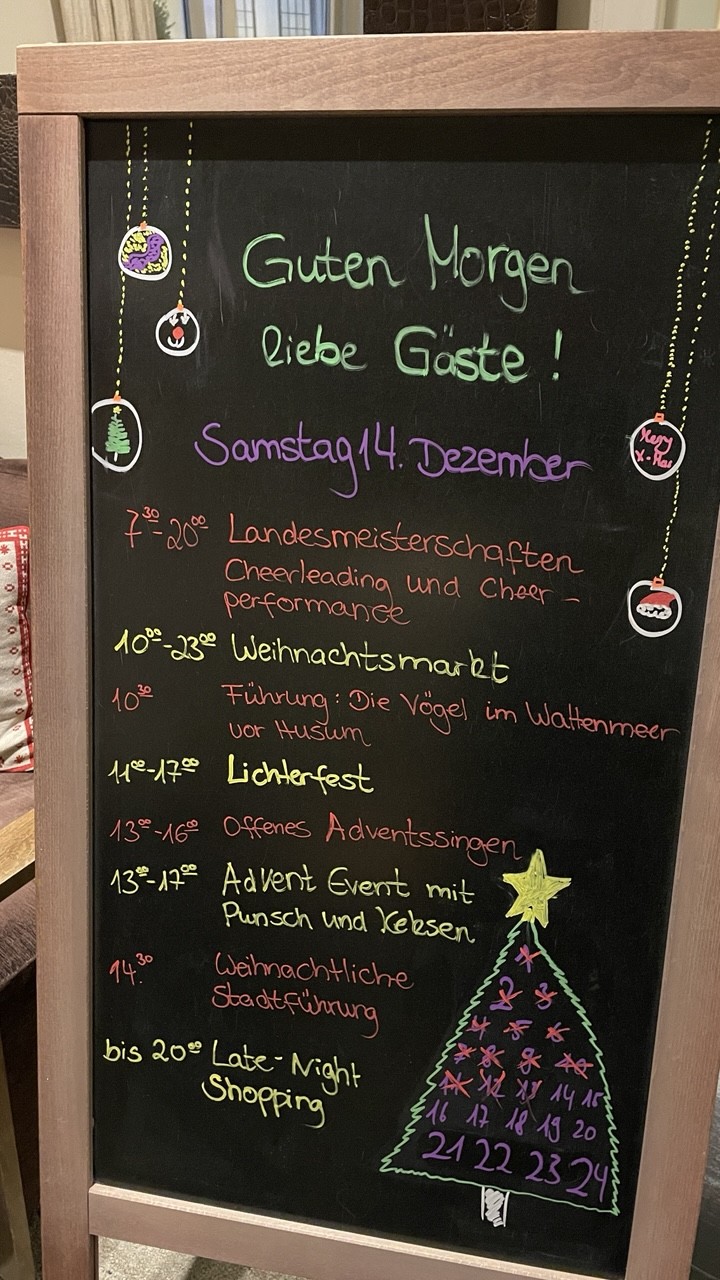 Guten Morgen
liebe Gäste !
Samstag 14. Dezember
Merry
X-Mas
7³⁰-20⁰⁰ Landesmeisterschaften
Cheerleading und Cheer-
performance
10⁰⁰-23⁰⁰ Weihnachtsmarkt
10³⁰ Führung: Die Vögel im Wattenmeer
vor Husum
11⁰⁰-17⁰⁰ Lichterfest
13⁰⁰-16⁰⁰ Offenes Adventssingen
13⁰⁰-17⁰⁰ Advent Event mit
Punsch und Keksen
14.³⁰ Weihnachtliche
Stadtführung
bis 20⁰⁰ Late-Night
Shopping
1
2 3
4 5 6
7 8 9 10
11 12 13 14 15
16 17 18 19 20
21 22 23 24